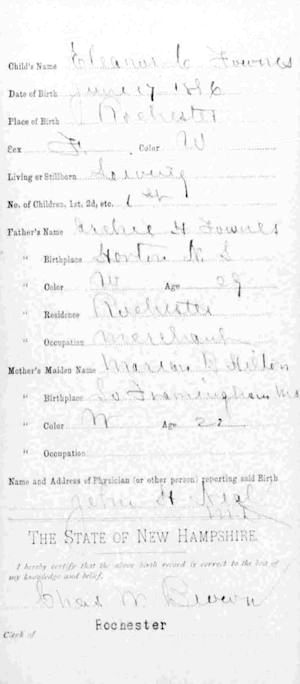 Child's Name Eleanor C Fownes
Date of Birth June 17 1896
Place of Birth Rochester
Sex F. Color W
Living or Stillborn Living
No. of Children, 1st, 2d, etc. 1st
Father's Name Archie H Fownes
" Birthplace Horton N. S
" Color W Age 29
" Residence Rochester
" Occupation Merchant
Mother's Maiden Name Marion Hilton
" Birthplace So Framingham Ma
" Color W Age
" Occupation
Name and Address of Physician (or other person) reporting said Birth
John H Neal
THE STATE OF NEW HAMPSHIRE.
I hereby certify that the above birth record is correct to the best of
my knowledge and belief.
Chas W Brown
Rochester
Clerk of